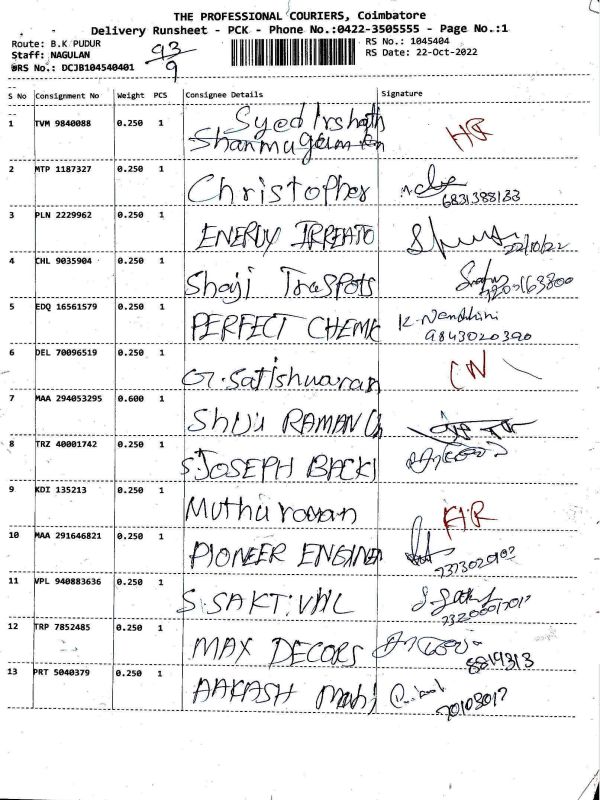 THE PROFESSIONAL COURIERS, Coimbatore
Delivery Runsheet - PCK - Phone No.:0422-3505555 - Page No.:1
Route: B.K PUDUR
RS No.: 1045404
Staff: NAGULAN
RS Date: 22-Oct-2022
DRS No.: DCJB104540401
93/9
S No Consignment No Weight PCS Consignee Details Signature
1 TVM 9840088 0.250 1 Syed Irshath HR
Shanmugam
2 MTP 1187327 0.250 1 Christopher
6831388133
3 PLN 2229962 0.250 1 ENERUY IRREATO
22/10/22
4 CHL 9035904 0.250 1 Shaji Traspots
5 EDQ 16561579 0.250 1 PERFECT CHEMK K. Nandhini
9843020390
6 DEL 70096519 0.250 1 G. Satishwaran CN
7 MAA 294053295 0.600 1 Shiji RAMAN
8 TRZ 40001742 0.250 1 S.JOSEPH BACKI
9 KDI 135213 0.250 1 Muthuraman HR
10 MAA 291646821 0.250 1 PIONEER ENGINER
11 VPL 940883636 0.250 1 S.SAKTIVAL
12 TRP 7852485 0.250 1 MAX DECORS
8819313
13 PRT 5040379 0.250 1 AAKASH Mahi